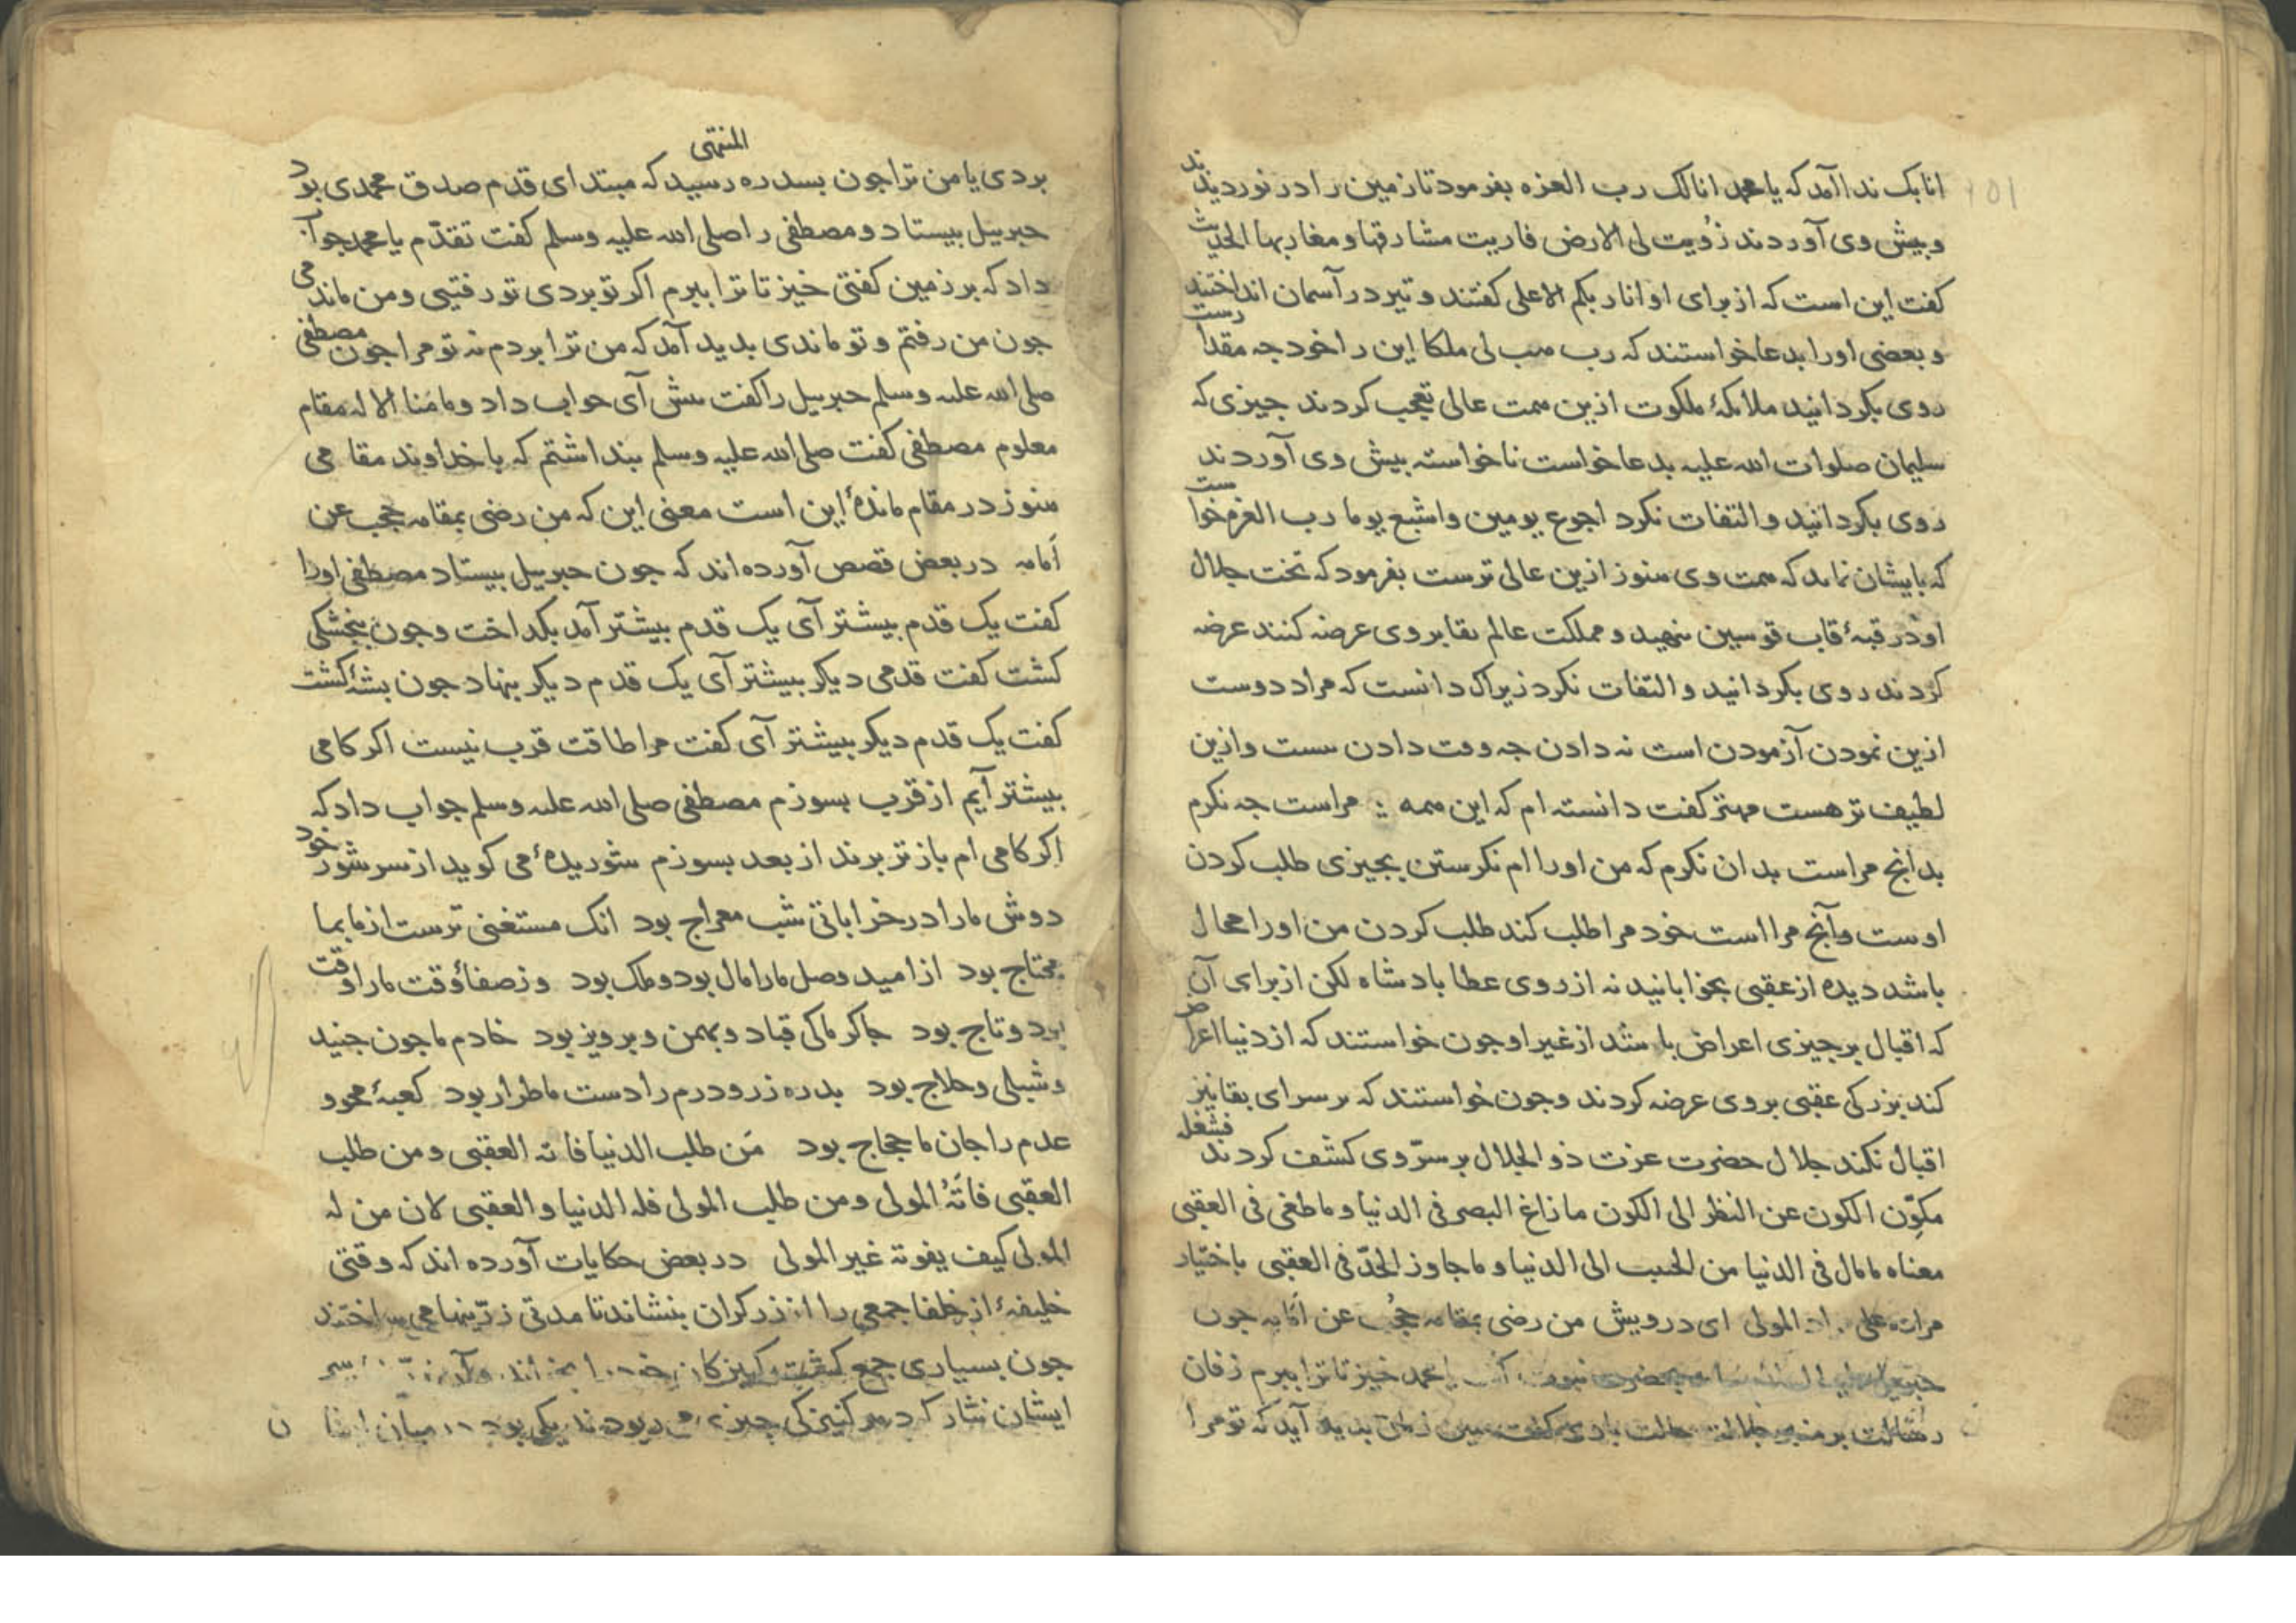 انابک ندا آمد که یا محمد انالک رب العزه بفرمود تا زمین را در نوردیدند
و بیش وی آوردند زُویت لی الارض فاریت مشارقها و مغاربها الحدیث
کفت این است که از برای او انا ربکم الاعلی کفتند و تیر در آسمان انداختند
و بعضی اورا بدعا خواستند که رب هب لی ملکا این را خود جه مقدارست
روی بکردانید ملائکهٔ ملکوت ازین همت عالی تعجب کردند جیزی که
سلیمان صلوات الله علیه بدعا خواست ناخواسته بیش وی آوردند
روی بکردانید و التفات نکرد اجوع یومین واشبع یوما رب العزه خواست
که بایشان نماید که همت وی هنوز ازین عالی ترست بفرمود که تخت جلال
او در قبهٔ قاب قوسین بنهید و مملکت عالم بقا بروی عرضه کنند عرضه
کردند روی بکردانید و التفات نکرد زیراک دانست که مراد دوست
ازین نمودن آزمودن است نه دادن جه وقت دادن نیست و ازین
لطیف تر هست مهتر کفت دانسته ام که این همه مراست جه نکرم
بدانج مراست بدان نکرم که من اورا ام نکرستن بجیزی طلب کردن
اوست و آنج مرا است خود مرا طلب کند طلب کردن من اورا محال
باشد دیده از عقبی بخوابانید نه از روی عطا بادشاه لکن از برای آن
که اقبال بر جیزی اعراض باشد از غیر او جون خواستند که از دنیا اعراض
کند بزرکی عقبی بروی عرضه کردند و جون خواستند که بر سرای بقا نیز
اقبال نکند جلال حضرت عزت ذو الجلال بر سرّ وی کشف کردند فشغل
مکوّن الکون عن النظر الی الکون ما زاغ البصر فی الدنیا و ما طغی فی العقبی
معناه ما مال فی الدنیا من الحبیب الی الدنیا و ما جاوز الحدّ فی العقبی باختیار
علی المولی ای درویش من رضی بمقامه حُجب عن اَمامه جون
یا محمد خیز تا ترا ببرم زفان
بدید آید که تو مرا
بردی یا من ترا جون بسدره المنتهی رسید که مبتدای قدم صدق محمدی بود
جبرییل بیستاد و مصطفی را صلی الله علیه وسلم کفت تقدّم یا محمد جواب
داد که بر زمین کفتی خیز تا ترا ببرم اکر تو بردی تو رفتیی و من ماندمی
جون من رفتم و تو ماندی بدید آمد که من ترا بردم نه تو مرا جون مصطفی
صلی الله علیه وسلم جبرییل را کفت بیش آی جواب داد و ما منا الا له مقام
معلوم مصطفی کفت صلی الله علیه وسلم بنداشتم که با خداوند مقامی
هنوز در مقام ماندهٔ این است معنی این که من رضی بمقامه حجب عن
اَمامه در بعض قصص آورده اند که جون جبرییل بیستاد مصطفی اورا
کفت یک قدم بیشتر آی یک قدم بیشتر آمد بکداخت و جون بنجشکی
کشت کفت قدمی دیکر بیشتر آی یک قدم دیکر بنهاد جون بشهٔ کشت
کفت یک قدم دیکر بیشتر آی کفت مرا طاقت قرب نیست اکر کامی
بیشتر آیم از قرب بسوزم مصطفی صلی الله علیه وسلم جواب داد که
اکر کامی ام باز تر برند از بعد بسوزم شوریدهٔ می کوید از سر شور خود
دوش ما را در خراباتی شب معراج بود انک مستغنی ترست از ما بما
محتاج بود از امید وصل ما را مال بود و ملک بود وز صفاء وقت ما را وقت
بود و تاج بود جاکر ما کی قباد و بهمن و برویز بود خادم ما جون جنید
و شبلی و حلاج بود بدره زر و درم را دست ما طرار بود کعبهٔ محو و
عدم را جان ما حجاج بود مَن طلب الدنیا فاته العقبی و من طلب
العقبی فاتَهُ المولی و من طلب المولی فله الدنیا و العقبی لان من له
المولی کیف یفوته غیر المولی در بعض حکایات آورده اند که وقتی
خلیفهٔ از خلفا جمعی را از زرکران بنشاند تا مدتی زرّینها می ساختند
جون بسیاری جمع کشت کنیزکان
ایشان نثار کرد هر کنیزکی جیزی می ربودند یکی بود میان ایشان